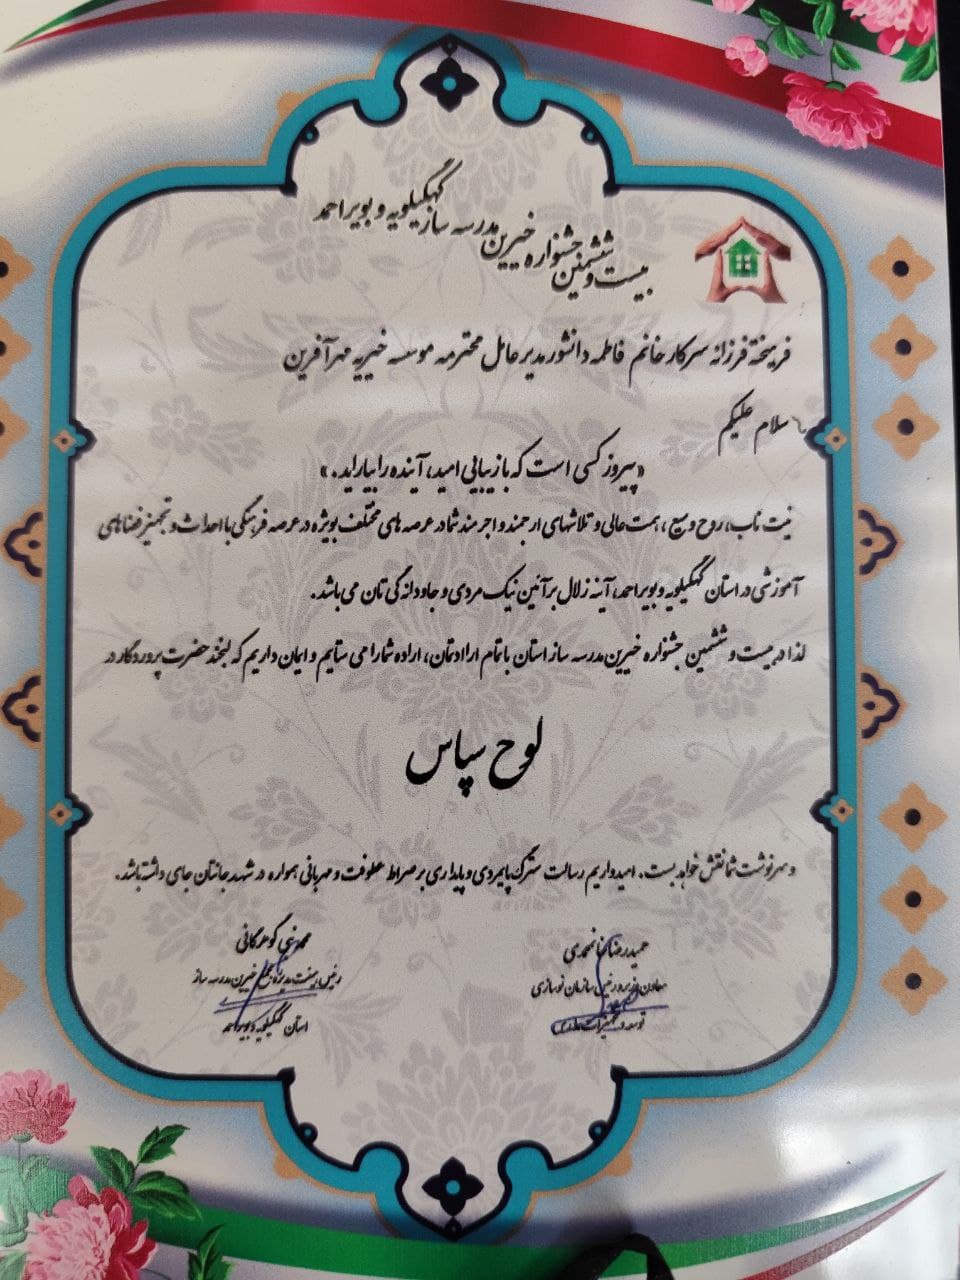 بیست و ششمین جشنواره خیرین مدرسه ساز کهگیلویه و بویراحمد
فریخته فرزانه سرکار خانم فاطمه دانشور مدیر عامل محترمه موسسه خیریه مهرآفرین
سلام علیکم
«پیروز کسی است که با زیبایی امید، آینده را بیاراید.»
نیت ناب، روح وسیع، همت عالی و تلاشهای ارجمند و اجرمند شما در عرصه های مختلف بویژه در عرصه فرهنگی با احداث و تجهیز فضاهای
آموزشی در استان کهگیلویه و بویراحمد، آینه زلال بر آئین نیک مردی و جاودانگی تان می باشد.
لذا در بیست و ششمین جشنواره خیرین مدرسه ساز استان با تمام ارادتمان، اراده شما را می ستایم و ایمان داریم که لبخند حضرت پروردگار در
لوح سپاس
و سرنوشت شما نقش خواهد بست. امیدواریم رسالت سترگ پایمردی و پایداری بر صراط عطوفت و مهربانی همواره در شهد جانتان جای داشته باشد.
حمیدرضا خانمحمدی
معاون وزیر و رئیس سازمان نوسازی
توسعه و تجهیزات مدارس
محمدنبی گوهرگانی
رئیس هیئت مدیره مجمع خیرین مدرسه ساز
استان کهگیلویه و بویراحمد